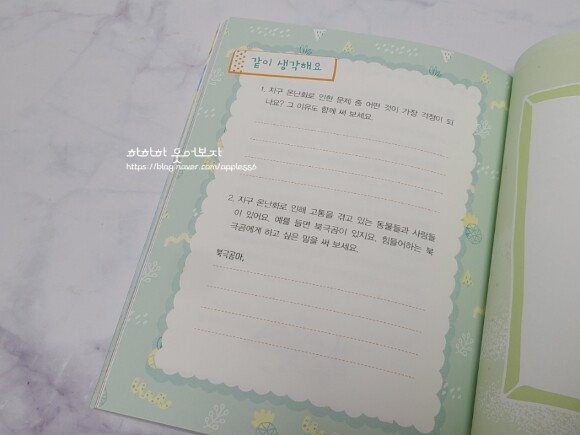 같이 생각해요
1. 지구 온난화로 인한 문제 중 어떤 것이 가장 걱정이 되
나요? 그 이유도 함께 써 보세요.
하하하 웃어보자
https://blog.naver.com/apple556
2. 지구 온난화로 인해 고통을 겪고 있는 동물들과 사람들
이 있어요. 예를 들면 북극곰이 있지요. 힘들어하는 북
극곰에게 하고 싶은 말을 써 보세요.
북극곰아,